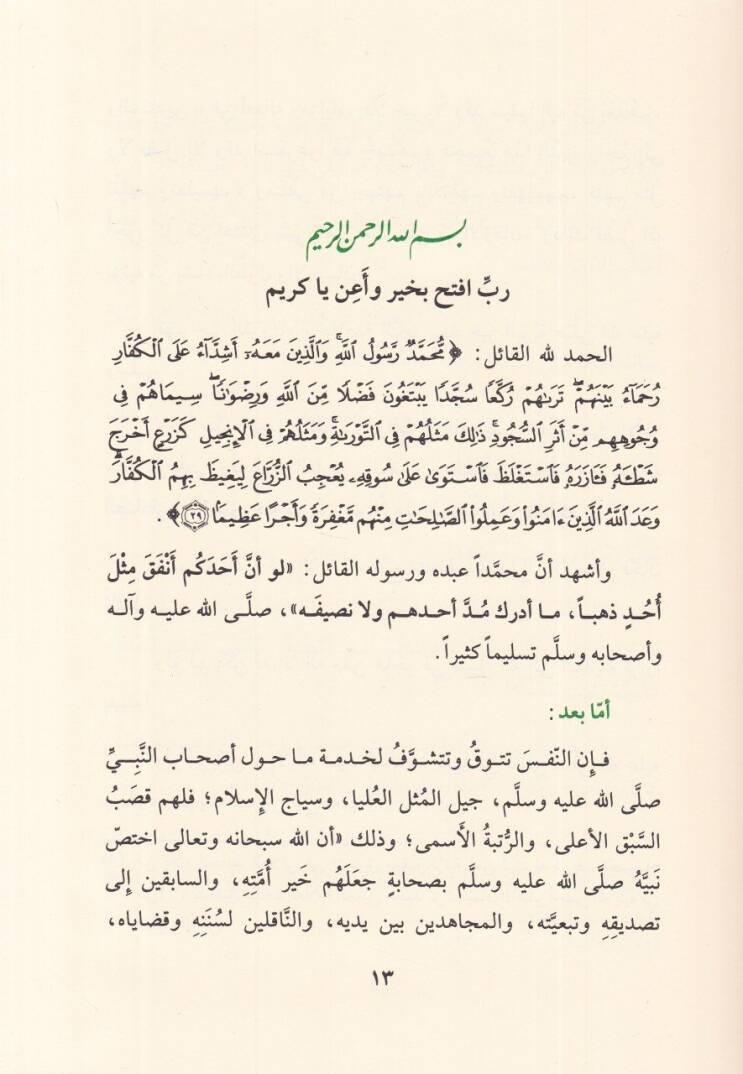 بسم الله الرحمن الرحيم
ربِّ افتح بخير وأَعِن يا كريم
الحمد لله القائل: ﴿مُّحَمَّدٌ رَّسُولُ ٱللَّهِۚ وَٱلَّذِينَ مَعَهُۥٓ أَشِدَّآءُ عَلَى ٱلۡكُفَّارِ
رُحَمَآءُ بَيۡنَهُمۡۖ تَرَىٰهُمۡ رُكَّعٗا سُجَّدٗا يَبۡتَغُونَ فَضۡلٗا مِّنَ ٱللَّهِ وَرِضۡوَٰنٗاۖ سِيمَاهُمۡ فِي
وُجُوهِهِم مِّنۡ أَثَرِ ٱلسُّجُودِۚ ذَٰلِكَ مَثَلُهُمۡ فِي ٱلتَّوۡرَىٰةِۚ وَمَثَلُهُمۡ فِي ٱلۡإِنجِيلِ كَزَرۡعٍ أَخۡرَجَ
شَطۡـَٔهُۥ فَـَٔازَرَهُۥ فَٱسۡتَغۡلَظَ فَٱسۡتَوَىٰ عَلَىٰ سُوقِهِۦ يُعۡجِبُ ٱلزُّرَّاعَ لِيَغِيظَ بِهِمُ ٱلۡكُفَّارَۗ
وَعَدَ ٱللَّهُ ٱلَّذِينَ ءَامَنُواْ وَعَمِلُواْ ٱلصَّٰلِحَٰتِ مِنۡهُم مَّغۡفِرَةٗ وَأَجۡرًا عَظِيمَۢا ٢٩﴾.
وأشهد أنَّ محمَّداً عبده ورسوله القائل: «لو أنَّ أَحَدَكُم أَنْفَقَ مِثْلَ
أُحُـدٍ ذهبـاً، مـا أدرك مُـدَّ أحـدهـم ولا نصيفَـه»، صلَّـى الله عليـه وآلـه
وأصحابه وسلَّم تسليماً كثيراً.
أمّا بعد:
فـإن النّفـسَ تتـوقُ وتتشـوَّفُ لخـدمـة مـا حـول أصحـاب النَّبِـيِّ
صلَّى الله عليه وسلَّم، جيل المُثل العُليا، وسياج الإسلام؛ فلهم قصَبُ
السَّبْق الأعلى، والرُّتبةُ الأسمى؛ وذلك «أن الله سبحانه وتعالى اختصّ
نَبيَّهُ صلَّى الله عليه وسلَّم بصحابةٍ جعلَهُم خَير أُمَّتِهِ، والسابقين إلى
تصديقِهِ وتبعيَّته، والمجاهدين بين يديه، والنَّاقلين لسُنَنِهِ وقضاياه،
١٣